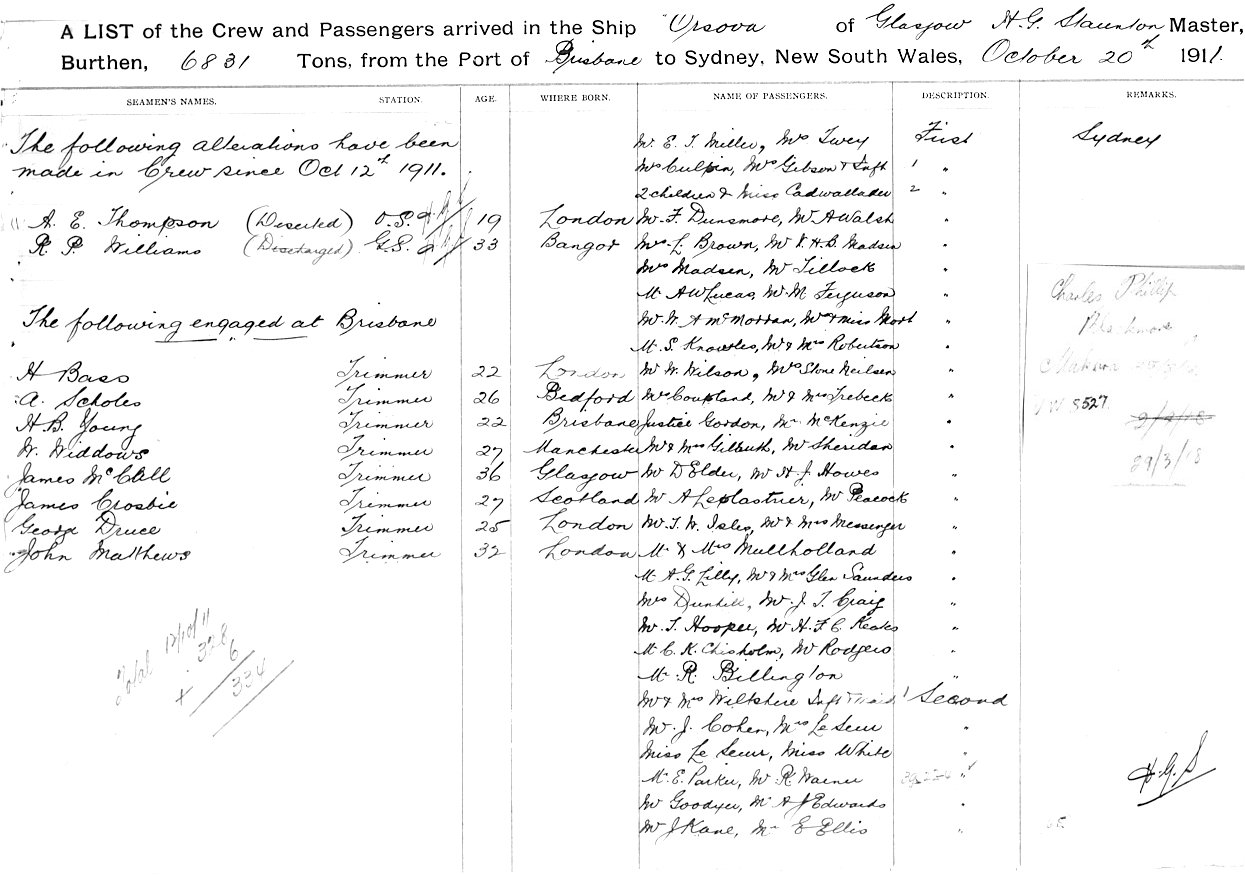 A LIST of the Crew and Passengers arrived in the Ship Orsova of Glasgow H.G. Staunton Master,
Burthen, 6831 Tons, from the Port of Brisbane to Sydney, New South Wales, October 20th 1911.
SEAMEN'S NAMES. STATION. AGE. WHERE BORN. NAME OF PASSENGERS. DESCRIPTION. REMARKS.
The following alterations have been
made in Crew since Oct 12th 1911.
A. E. Thompson (Deserted) O.S. 19 London
R. P. Williams (Discharged) G.S. 33 Bangor
The following engaged at Brisbane
H Bass Trimmer 22 London
A. Scholes Trimmer 26 Bedford
H. B. Young Trimmer 22 Brisbane
W. Widdows Trimmer 27 Manchester
James McCall Trimmer 36 Glasgow
James Crosbie Trimmer 27 Scotland
George Druce Trimmer 25 London
John Matthews Trimmer 32 London
Total 12/10/11
328
+ 6
334
Mr E. T. Miller, Mrs Twey First Sydney
Mrs Culpin, Mrs Gibson & Inft 1 "
2 children & Miss Cadwallader 2 "
Mr F Dunsmore, Mr A Walsh "
Mrs L Brown, Mr V. H. B. Madsen "
Mrs Madsen, Mr Tillock "
Mr A W Lucas, Mr M Ferguson "
Mr W. A McMorran, Mr & Miss Mort "
Mr S. Knowles, Mr & Mrs Robertson "
Mr W. Wilson, Mrs Stone Neilsen "
Mrs Coupland, Mr & Mrs Trebeck "
Justice Gordon, Mr McKenzie "
Mr & Mrs Gilbuth, Mr Sheridan "
Mr D Elder, Mr H J Howes "
Mr A Leplastrier, Mr Peacock "
Mr J. W. Isles, Mr & Mrs Messenger "
Mr & Mrs Mullholland "
Mr A. G. Lilly, Mr & Mrs Glen Saunders "
Mrs Dunhill, Mr J. T. Craig "
Mr T. Hooper, Mr H. F. C. Keats "
Mr C. K. Chisholm, Mr Rodgers "
Mr R. Billington "
Mr & Mrs Wiltshire Inft 1 Second
Mr J. Cohen, Mrs Le Seur "
Miss Le Seur, Miss White "
Mr E. Parker, Mr R. Warner "
Mr Goodyer, Mr A J Edwards "
Mr J Kane, Mr E Ellis "
Charles Phillip
Blackmore
Makura
8527
2/4/18
29/3/18
H.G.S